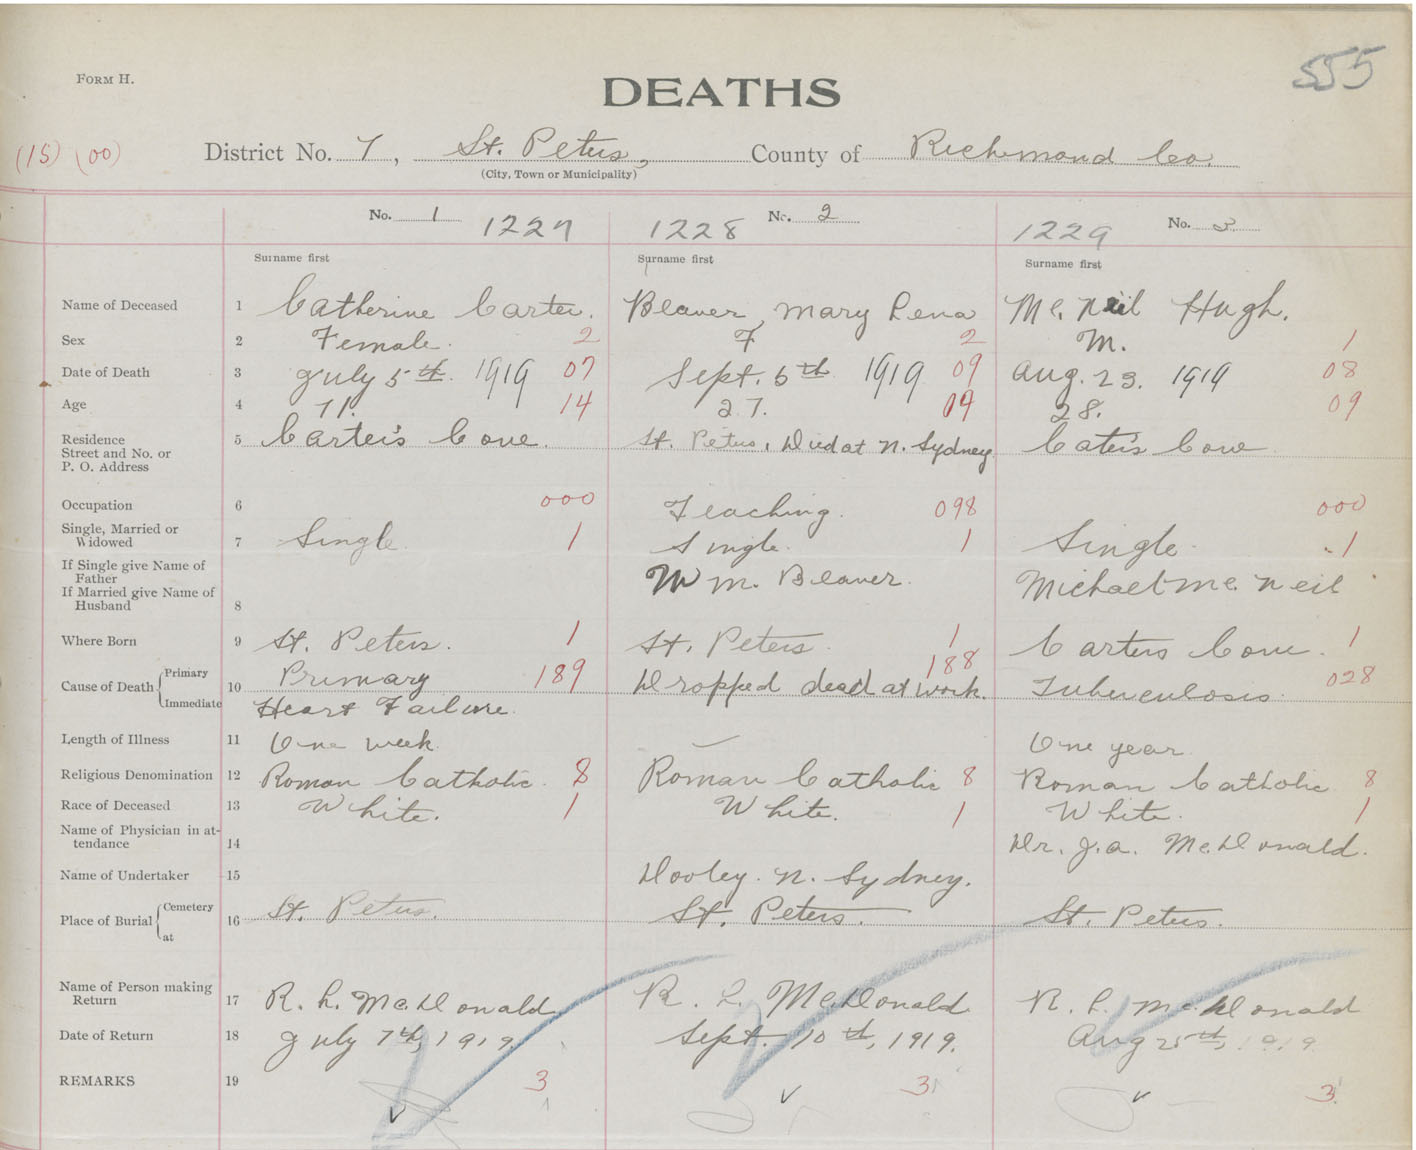 555
FORM H.
DEATHS
(15) (00)
District No. 7, St. Peters, County of Richmond Co.
(City, Town or Municipality)
No. 1 1227 1228 No. 2 1229 No. 3
Surname first Surname first Surname first
Name of Deceased 1 Catherine Carter. Beaver, Mary Lena Mc. Neil Hugh.
Sex 2 Female. 2 F 2 M. 1
Date of Death 3 July 5th. 1919 07 Sept. 6th 1919 09 Aug. 23. 1919 08
Age 4 71. 14 27. 09 28. 09
Residence
Street and No. or
P. O. Address 5 Carter's Cove. St. Peters, Died at N. Sydney. Cater's Cove
Occupation 6 000 Teaching. 098 000
Single, Married or
Widowed 7 Single. 1 Single. 1 Single. 1
If Single give Name of
Father
If Married give Name of
Husband 8 Wm. Beaver. Michael Mc. Neil
Where Born 9 St. Peters. 1 St. Peters. 1 Carters Cove. 1
Cause of Death Primary
Immediate 10 Primary 189 Dropped dead at work. 188 Tuberculosis. 028
Heart Failure.
Length of Illness 11 One week. One year.
Religious Denomination 12 Roman Catholic. 8 Roman Catholic 8 Roman Catholic 8
Race of Deceased 13 White. 1 White. 1 White. 1
Name of Physician in at-
tendance 14 Dr. J. A. Mc. Donald.
Name of Undertaker 15 Dooley. N. Sydney.
Place of Burial Cemetery
at 16 St. Peters. St. Peters. St. Peters.
Name of Person making
Return 17 R. L. McDonald R. L. McDonald R. L. McDonald
Date of Return 18 July 7th, 1919. Sept. 10th, 1919. Aug 25th, 1919
REMARKS 19 3 3 3